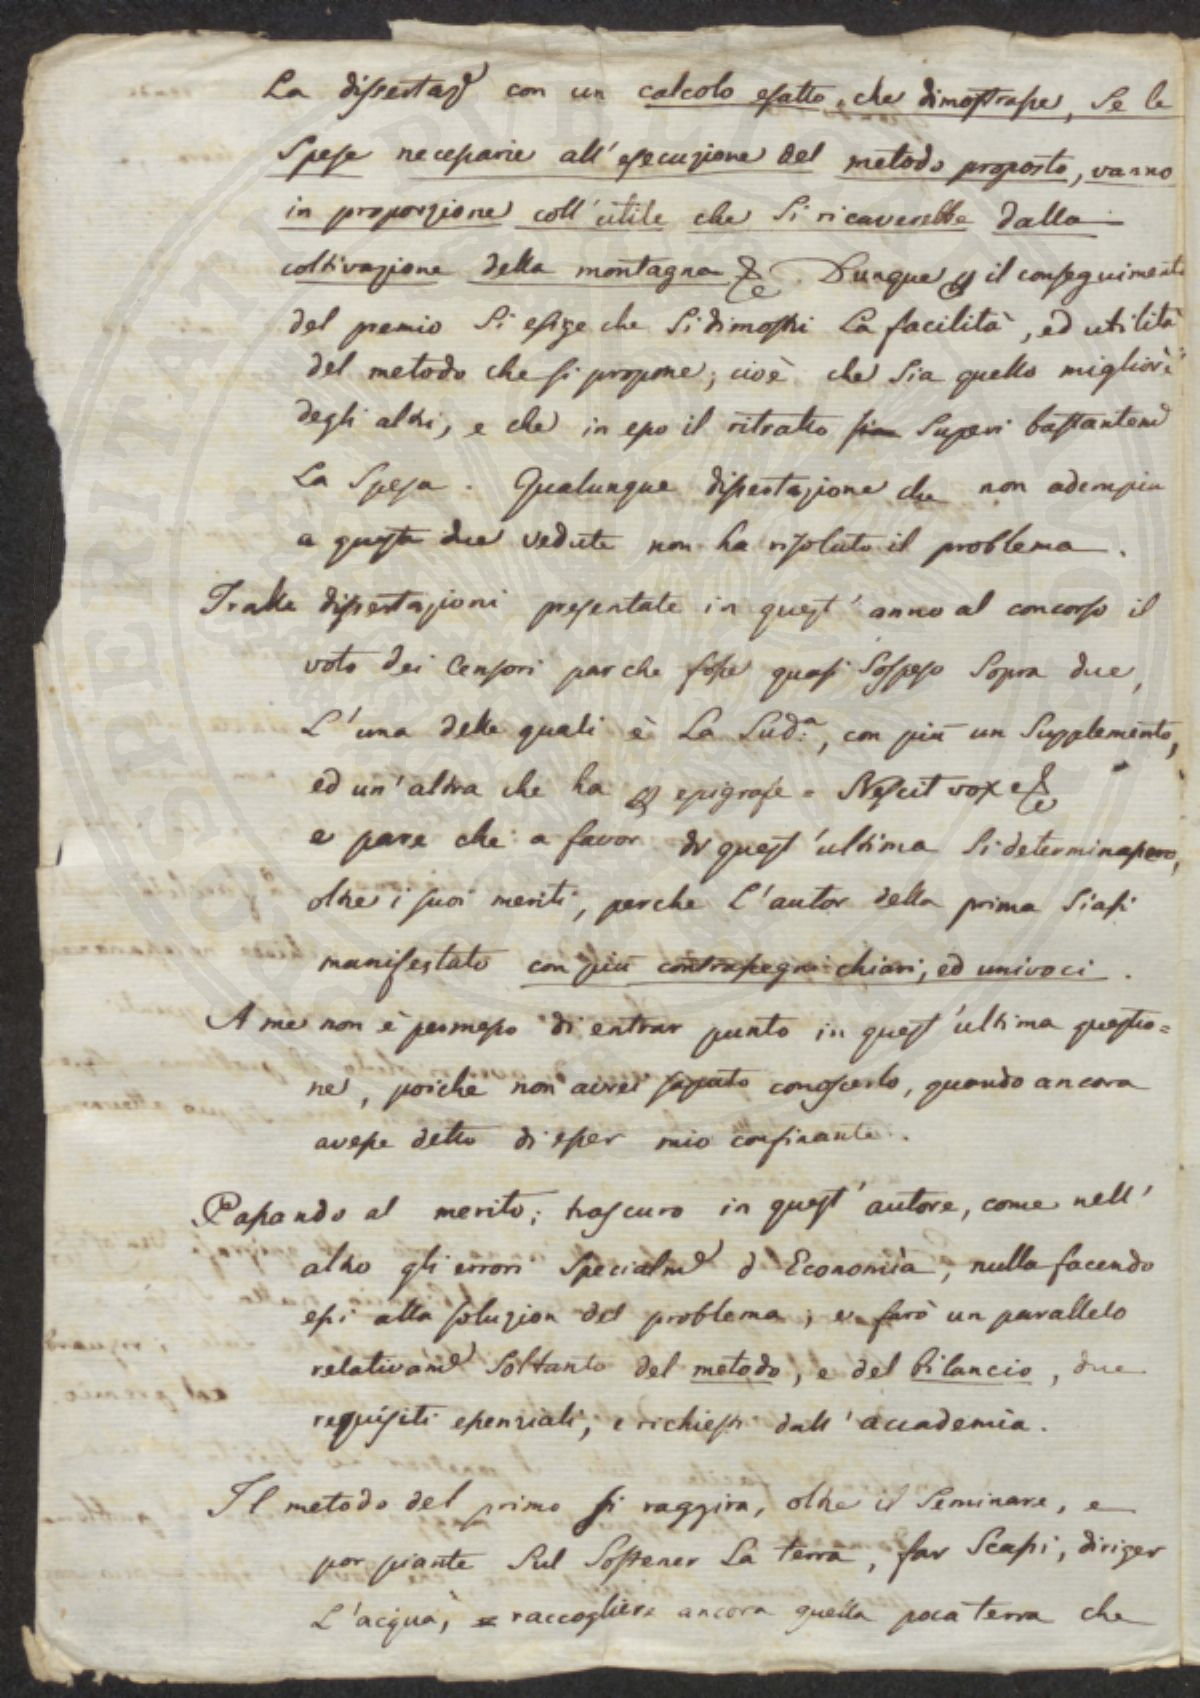 La dissertaze con un calcolo esatto, che dimostrasse, se le
Spese necessarie all'esecuzione del metodo proposto, vanno
in proporzione coll'utile che si ricaverebbe dalla
coltivazione della montagna &c. Dunque p il conseguimento
del premio Si esige che Si dimostri La facilità, ed utilità
del metodo che si propone; cioè che Sia quello migliore
degli altri, e che in esso il ritratto sia Superi bastantem.e
La Spesa. Qualunque dissertazione che non adempia
a queste due vedute non ha risoluto il problema.
Tralle dissertazioni presentate in quest'anno al concorso il
voto dei Censori par che fosse quasi Sospeso Sopra due,
L'una delle quali è La Sud.a, con più un Supplemento,
ed un'altra che ha p epigrafe = Nescit vox &c
e pare che a favor di quest'ultima Si determinassero,
oltre i suoi meriti, perche L'autor della prima Siasi
manifestato con più contrasegni chiari, ed univoci.
A me non è permesso di entrar punto in quest'ultima questio=
ne, poiche non avrei saputo conoscerlo, quando ancora
avesse detto di esser mio confinante.
Passando al merito; trascuro in quest'autore, come nell'
altro gli errori Specialm.e d Economia, nulla facendo
essi alla soluzion del problema; e farò un parallelo
relativam.e Soltanto del metodo, e del bilancio, due
requisiti essenziali, e richiesti dall'accademia.
Il metodo del primo si raggira, oltre il Seminare, e
por piante Sul Sostener La terra, far Scassi, diriger
L'acqua, e raccogliere ancora quella poca terra che